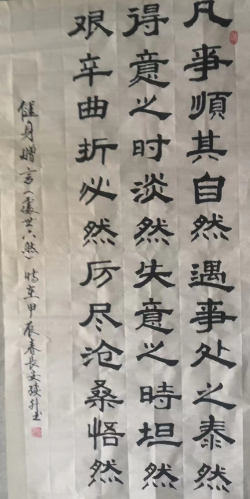 凡事順其自然遇事处之泰然
得意之时淡然失意之時坦然
艰辛曲折必然历尽沧桑悟然
健身赠言（處世六然）
甲辰春長安
书